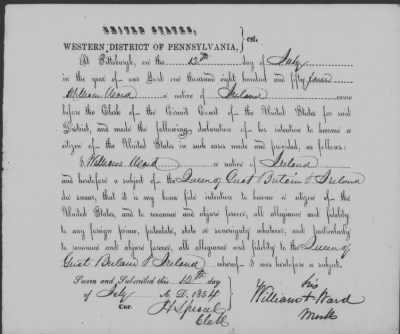 UNITED STATES,
WESTERN DISTRICT OF PENNSYLVANIA, } sct.
At Pittsburgh, on the 12th day of July
in the year of our Lord one thousand eight hundred and fifty four
William Ward a native of Ireland came
before the Clerk of the Circuit Court of the United States for said
District, and made the following declaration of his intention to become a
citizen of the United States in such cases made and provided, as follows:
I, William Ward a native of Ireland
and heretofore a subject of the Queen of Great Britain & Ireland
do swear, that it is my bona fide intention to become a citizen of the
United States, and to renounce and abjure forever, all allegiance and fidelity
to any foreign prince, potentate, state or sovereignty whatever, and particularly
to renounce and abjure forever, all allegiance and fidelity to the Queen of
Great Britain & Ireland whereof I was heretofore a subject.
Sworn and Subscribed this 12th day
of July A. D. 1854
Cor: H Sproul
Clerk
his
William + Ward
Mark